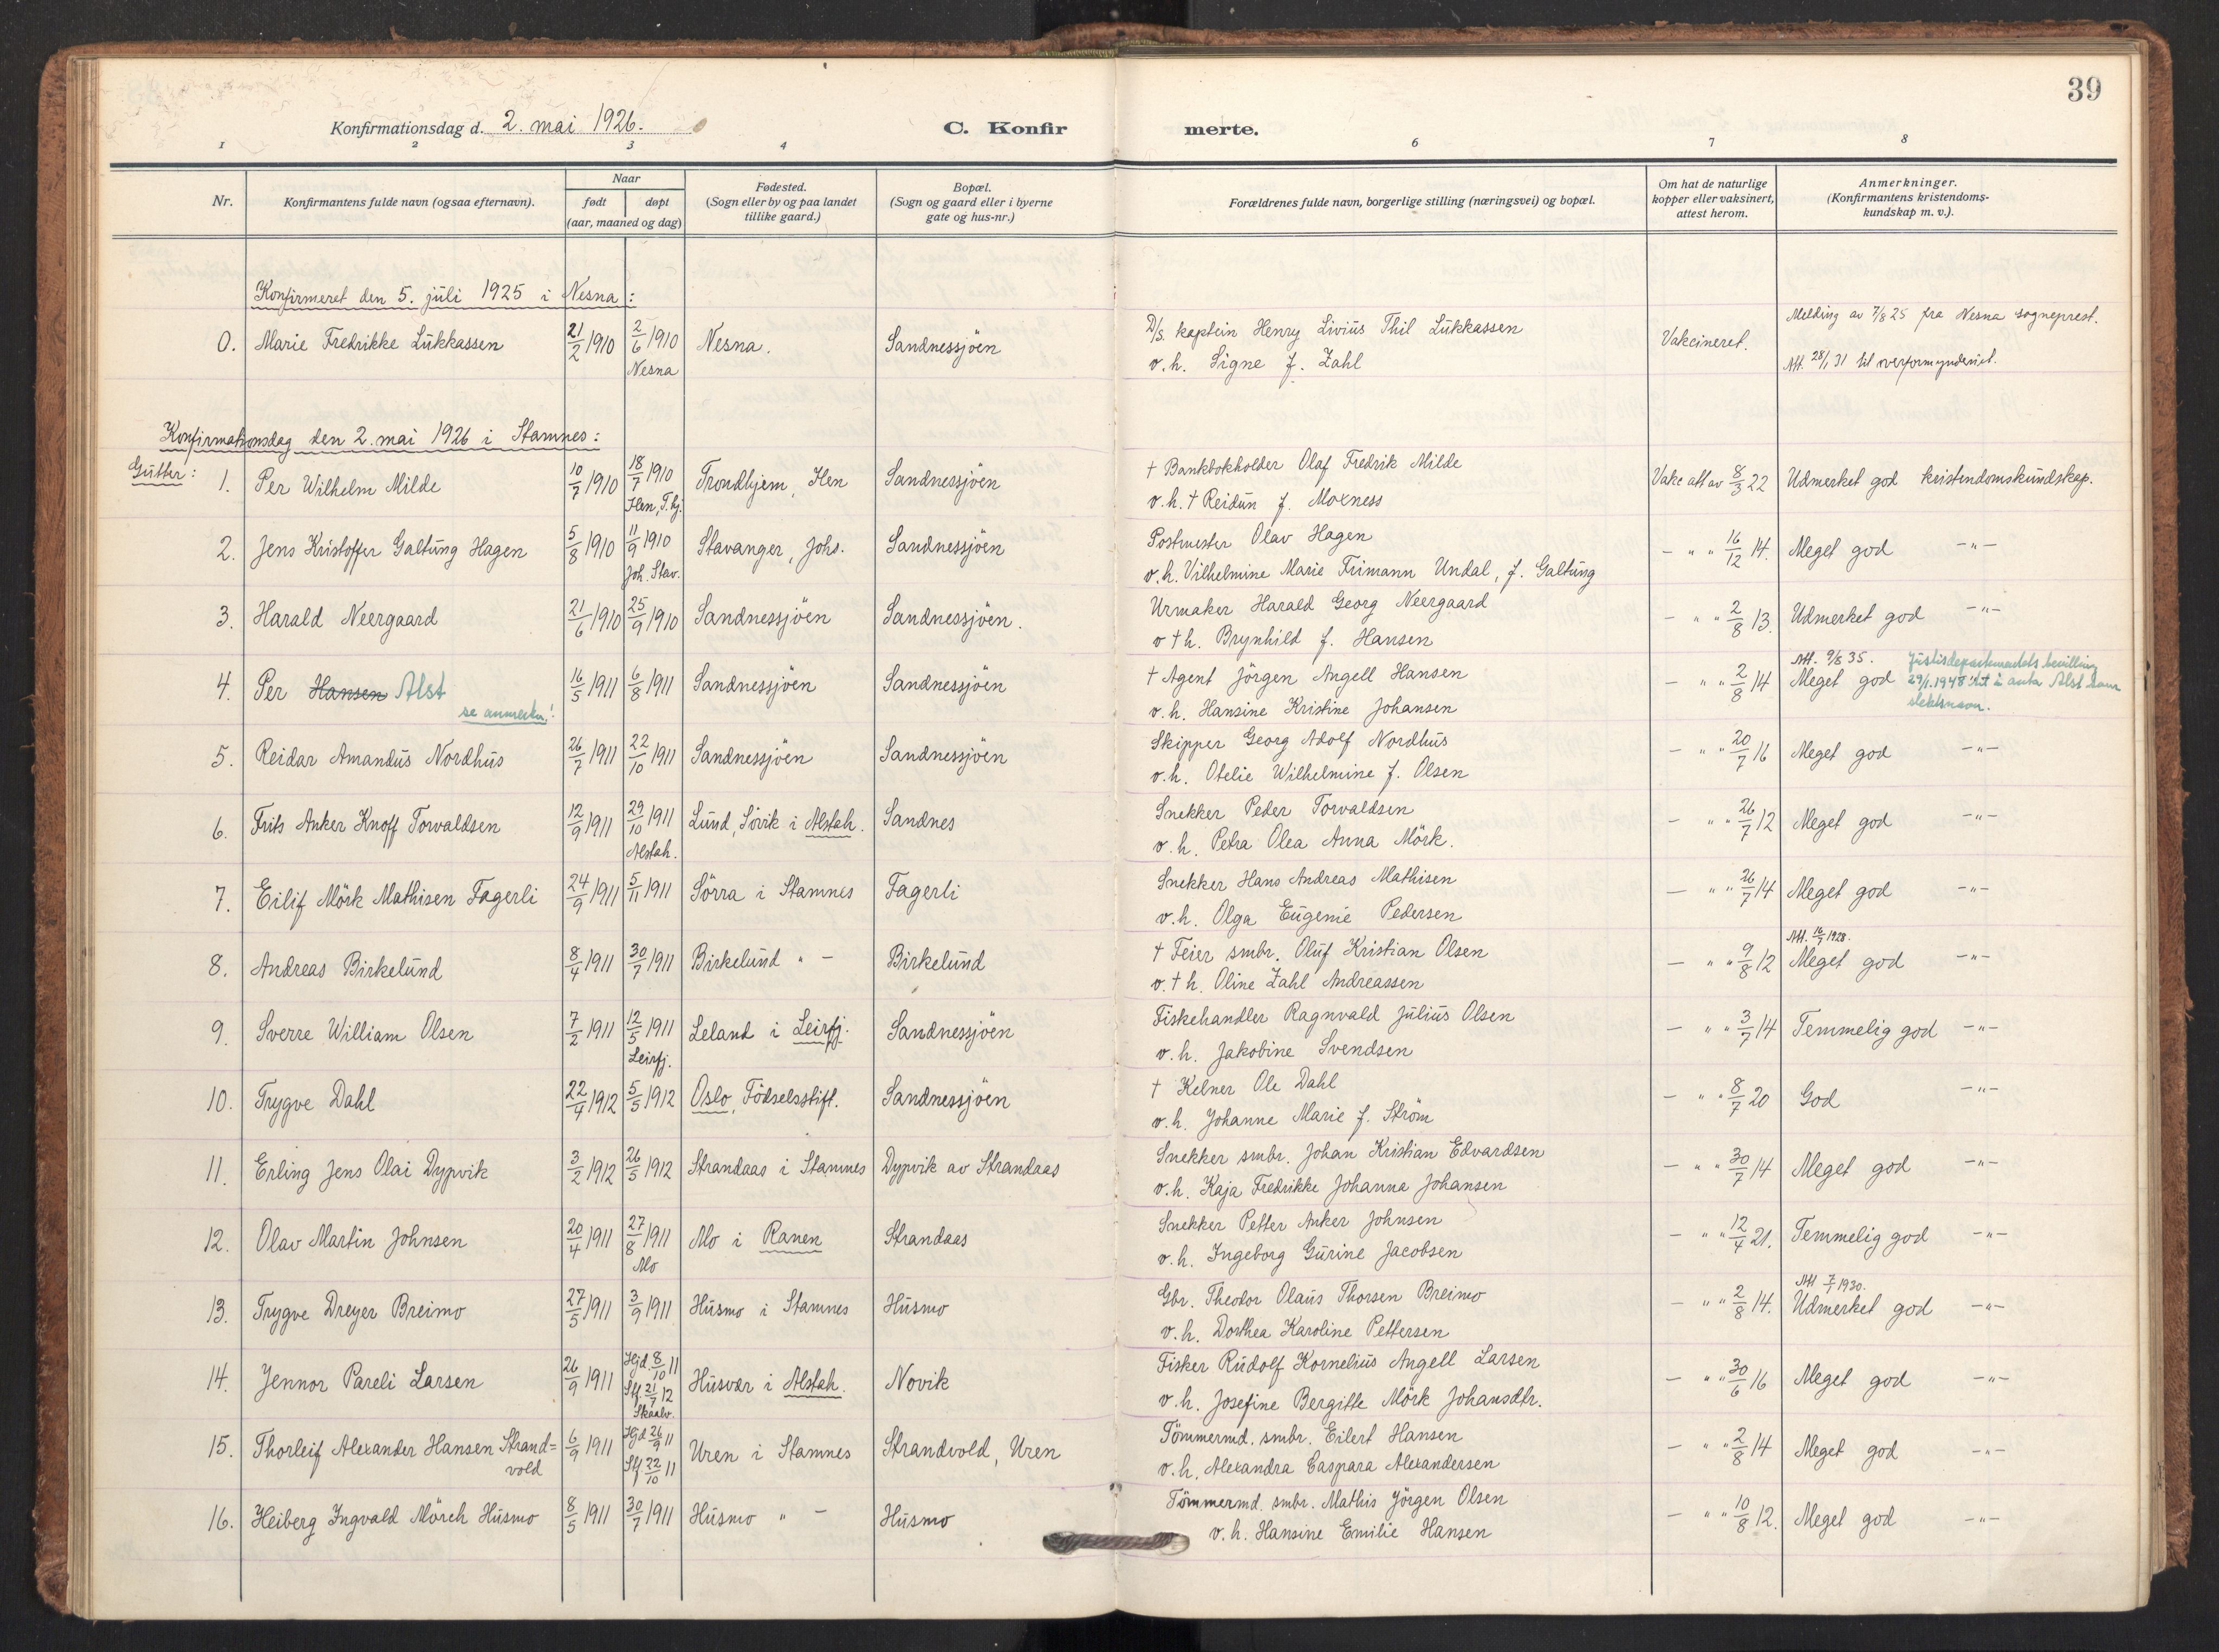 39
Konfirmationsdag d. 2. mai 1926.
C. Konfirmerte.
1 2 3 4 6 7 8
Nr.
Konfirmantens fulde navn (ogsaa efternavn).
Naar
født døpt
(aar, maaned og dag)
Fødested.
(Sogn eller by og paa landet
tillike gaard.)
Bopæl.
(Sogn og gaard eller i byerne
gate og hus-nr.)
Forældrenes fulde navn, borgerlige stilling (næringsvei) og bopæl.
Om hat de naturlige
kopper eller vaksinert,
attest herom.
Anmerkninger.
(Konfirmantens kristendoms-
kundskap m. v.).
Konfirmeret den 5. juli 1925 i Nesna:
0. Marie Fredrikke Lukkassen 21/2 1910 2/6 1910 Nesna Nesna. Sandnessjöen
D/S. kaptein Henry Livius Thil Lukkassen
v. h. Signe f. Zahl
Vakcineret.
Melding av 7/8 25 fra Nesna sogneprest.
Att. 28/1 31 til overformynderiet.
Konfirmationsdag den 2. mai 1926 i Stamnes:
Gutter:
1. Per Wilhelm Milde 10/7 1910 18/7 1910 Ilen, T.hj. Trondhjem, Ilen Sandnessjöen
† Bankbokholder Olaf Fredrik Milde
v. h. † Reidun f. Moxness
Vakc att av 8/3 22 Udmerket god kristendomskundskap.
2. Jens Kristoffer Galtung Hagen 5/8 1910 11/9 1910 Joh. Stav. Stavanger, Johs. Sandnessjöen
Postmester Olav Hagen
v. h. Vilhelmine Marie Frimann Undal, f. Galtung
— " " 16/12 14. Meget god —"—
3. Harald Neergaard 21/6 1910 25/9 1910 Sandnessjöen Sandnessjöen.
Urmaker Harald Georg Neergaard
v † h. Brynhild f. Hansen
— " " 2/8 13. Udmerket god —"—
4. Per Hansen Alst 16/5 1911 6/8 1911 Sandnessjöen Sandnessjöen
se anmerkn.!
† Agent Jörgen Angell Hansen
v. h. Hansine Kristine Johansen
— " " 2/8 14 Att. 9/8 35. Meget god
Justisdepartementets bevilling
29/1.1948 til å anta Alst som
slektsnavn.
5. Reidar Amandus Nordhus 26/7 1911 22/10 1911 Sandnessjöen Sandnessjöen
Skipper Georg Adolf Nordhus
v. h. Otelie Wilhelmine f. Olsen
— " " 20/7 16 Meget god —"—
6. Frits Anker Knoff Torvaldsen 12/9 1911 29/10 1911 Alstah. Lund, Sövik i Alstah. Sandnes
Snekker Peder Torvaldsen
v. h. Petra Olea Anna Mörk.
— " " 26/7 12 Meget god —"—
7. Eilif Mörk Mathisen Fagerli 24/9 1911 5/11 1911 Sörra i Stamnes Fagerli
Snekker Hans Andreas Mathisen
v. h. Olga Eugenie Pedersen
— " " 26/7 14 Meget god —"—
8. Andreas Birkelund 8/4 1911 30/7 1911 Birkelund " — Birkelund
† Feier smbr. Oluf Kristian Olsen
v. † h. Oline Zahl Andreassen
— " " 9/8 12 Att. 16/7 1928. Meget god —"—
9. Sverre William Olsen 7/2 1911 12/5 1911 Leirfj. Leland i Leirfj. Sandnessjöen
Fiskehandler Ragnvald Julius Olsen
v. h. Jakobine Svendsen
— " " 3/7 14 Temmelig god —"—
10. Trygve Dahl 22/4 1912 5/5 1912 Oslo, Födselsstift. Sandnessjöen
† Kelner Ole Dahl
v. h. Johanne Marie f. Ström
— " " 8/7 20 God —"—
11. Erling Jens Olai Dypvik 3/2 1912 26/5 1912 Strandaas i Stamnes Dypvik av Strandaas
Snekker smbr. Johan Kristian Edvardsen
v. h. Kaja Fredrikke Johanna Johansen
— " " 30/7 14 Meget god —"—
12. Olav Martin Johnsen 20/4 1911 27/8 1911 Mo Mo i Ranen Strandaas
Snekker Petter Anker Johnsen
v. h. Ingeborg Gurine Jacobsen
— " " 12/4 21. Temmelig god —"—
13. Trygve Dreyer Breimo 27/5 1911 3/9 1911 Husmo i Stamnes Husmo
Gbr. Theodor Olaus Thorsen Breimo
v. h. Dorthea Karoline Pettersen
— " " 2/8 14. Att 7/7 1930. Udmerket god —"—
14. Jennor Pareli Larsen 26/9 1911 Hjd. 8/10 11 Stf. 21/7 12 Skaalv. Husvær i Alstah. Novik
Fisker Rudolf Kornelius Angell Larsen
v. h. Josefine Bergitte Mörk Johansdtr.
— " " 30/6 16 Meget god —"—
15. Thorleif Alexander Hansen Strand=
vold 6/9 1911 Hjd 26/9 11 Stf 22/10 11 Uren i Stamnes Strandvold, Uren
Tömmermd. smbr. Eilert Hansen
v. h. Alexandra Caspara Alexandersen
— " " 2/8 14 Meget god —"—
16. Heiberg Ingvald Mörch Husmo 8/5 1911 30/7 1911 Husmo " — Husmo
Tömmermd. smbr. Mathis Jörgen Olsen
v. h. Hansine Emilie Hansen
— " " 10/8 12. Meget god —"—